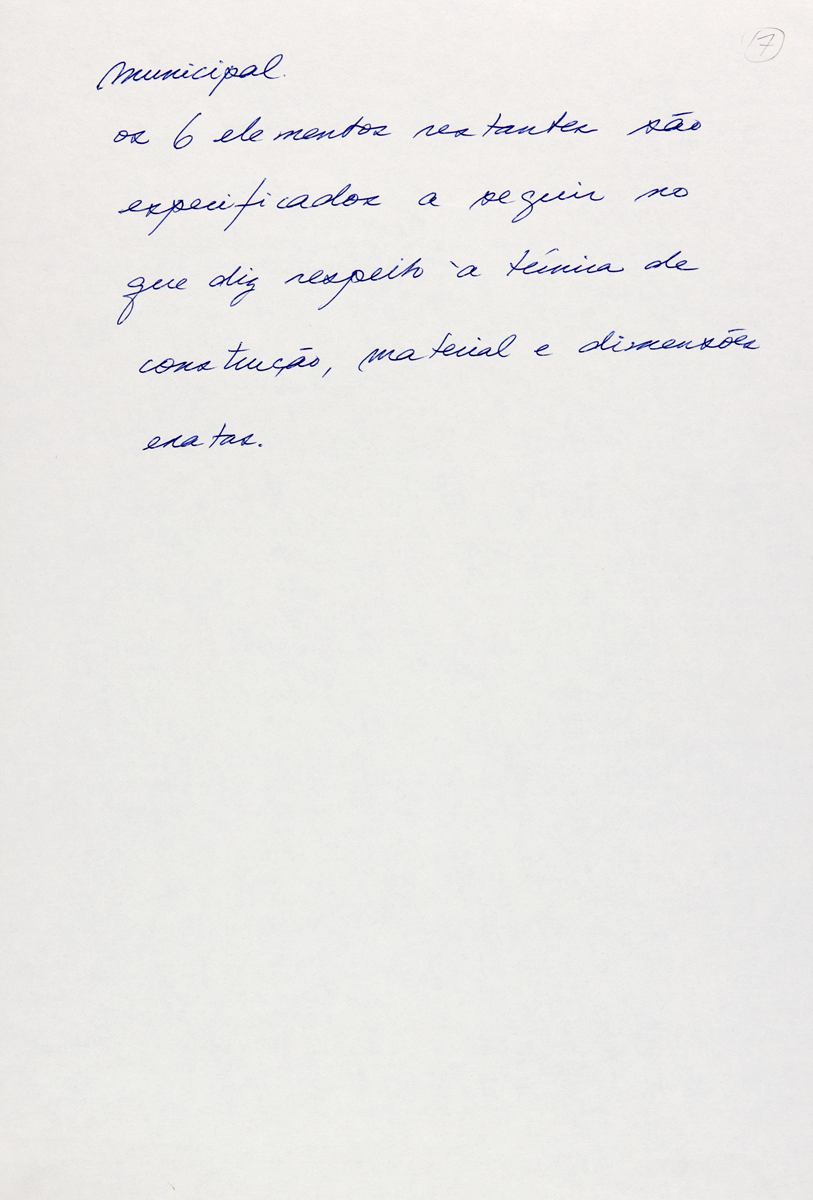 7
municipal.
os 6 elementos restantes são
especificados a seguir no
que diz respeito à técnica de
construção, material e dimensões
exatas.